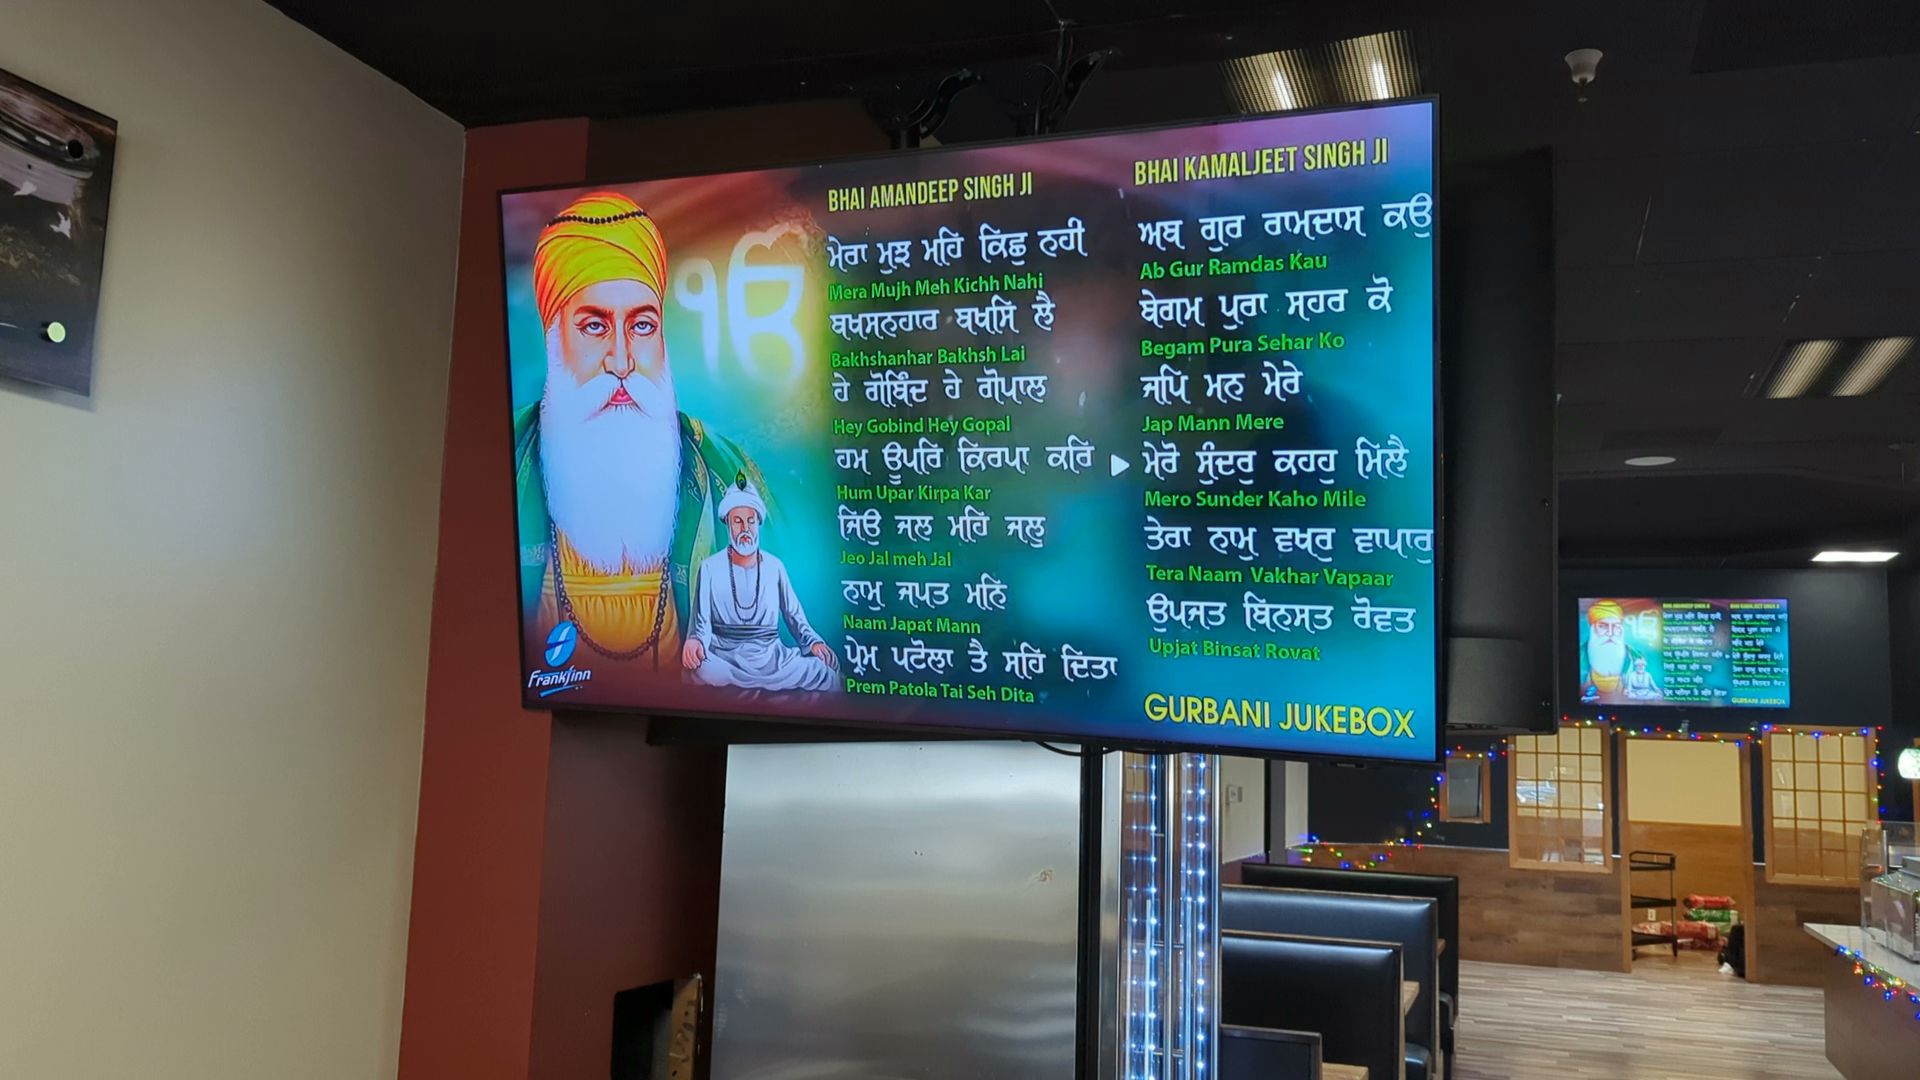 BHAI AMANDEEP SINGH JI
ਮੇਰਾ ਮੁਝ ਮਹਿ ਕਿਛੁ ਨਹੀ
Mera Mujh Meh Kichh Nahi
ਬਖਸਨਹਾਰ ਬਖਸਿ ਲੈ
Bakhshanhar Bakhsh Lai
ਹੇ ਗੋਬਿੰਦ ਹੇ ਗੋਪਾਲ
Hey Gobind Hey Gopal
ਹਮ ਊਪਰਿ ਕਿਰਪਾ ਕਰਿ
Hum Upar Kirpa Kar
ਜਿਉ ਜਲ ਮਹਿ ਜਲੁ
Jeo Jal meh Jal
ਨਾਮੁ ਜਪਤ ਮਨਿ
Naam Japat Mann
ਪ੍ਰੇਮ ਪਟੋਲਾ ਤੈ ਸਹਿ ਦਿਤਾ
Prem Patola Tai Seh Dita
BHAI KAMALJEET SINGH JI
ਅਬ ਗੁਰ ਰਾਮਦਾਸ ਕਉ
Ab Gur Ramdas Kau
ਬੇਗਮ ਪੁਰਾ ਸਹਰ ਕੋ
Begam Pura Sehar Ko
ਜਪਿ ਮਨ ਮੇਰੇ
Jap Mann Mere
ਮੇਰੋ ਸੁੰਦਰੁ ਕਹਹੁ ਮਿਲੈ
Mero Sunder Kaho Mile
ਤੇਰਾ ਨਾਮੁ ਵਖਰੁ ਵਾਪਾਰੁ
Tera Naam Vakhar Vapaar
ਉਪਜਤ ਬਿਨਸਤ ਰੋਵਤ
Upjat Binsat Rovat
GURBANI JUKEBOX
ੴ
Frankfinn
BHAI AMANDEEP SINGH JI
BHAI KAMALJEET SINGH JI
GURBANI JUKEBOX